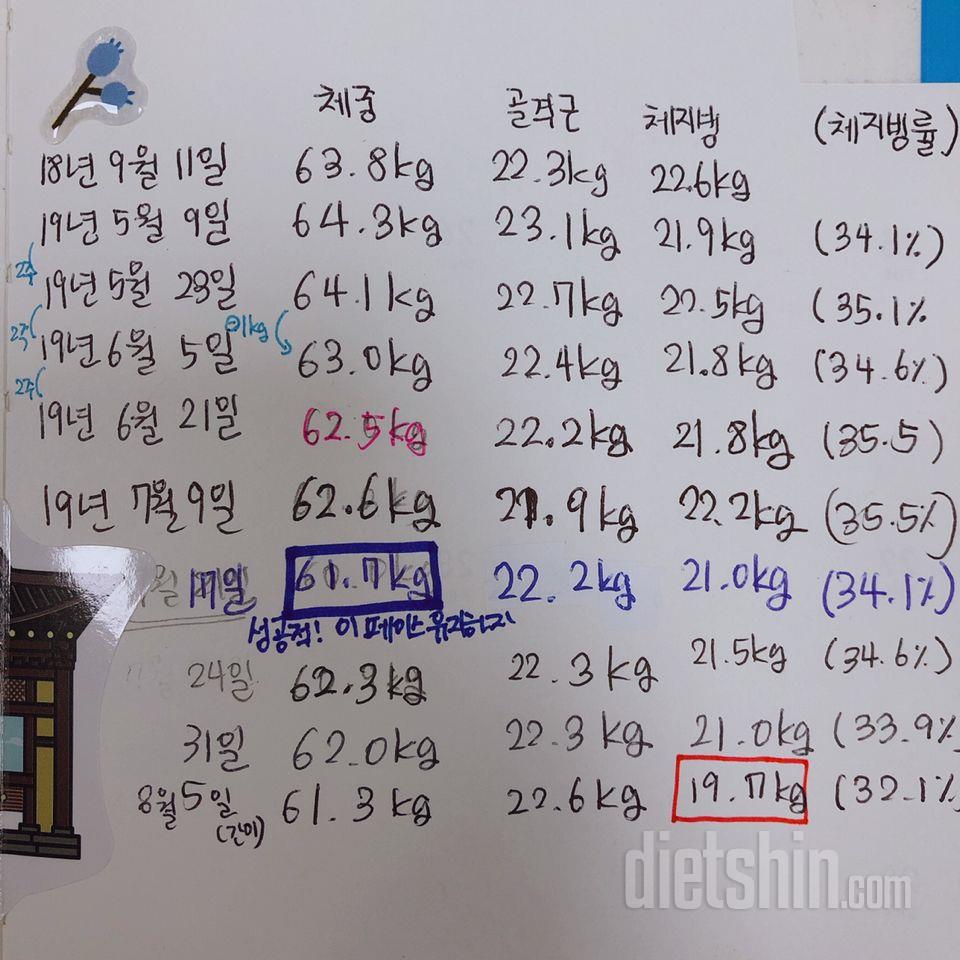 체중 골격근 체지방 (체지방률)
18년 9월 11일 63.8kg 22.3kg 22.6kg
19년 5월 9일 64.3kg 23.1kg 21.9kg (34.1%)
2주
19년 5월 23일 64.1kg 22.7kg 22.5kg (35.1%
2주 ⊖1kg
19년 6월 5일 63.0kg 22.4kg 21.8kg (34.6%)
2주
19년 6월 21일 62.5kg 22.2kg 21.8kg (35.5)
19년 7월 9일 62.6kg 21.9kg 22.2kg (35.5%)
월 17일 61.7kg 22.2kg 21.0kg (34.1%)
성공적! 이 페이스 유지하자
24일 62.3kg 22.3kg 21.5kg (34.6%)
31일 62.0kg 22.3kg 21.0kg (33.9%
8월 5일 61.3kg 22.6kg 19.7kg (32.1%
(간이)
dietshin.com